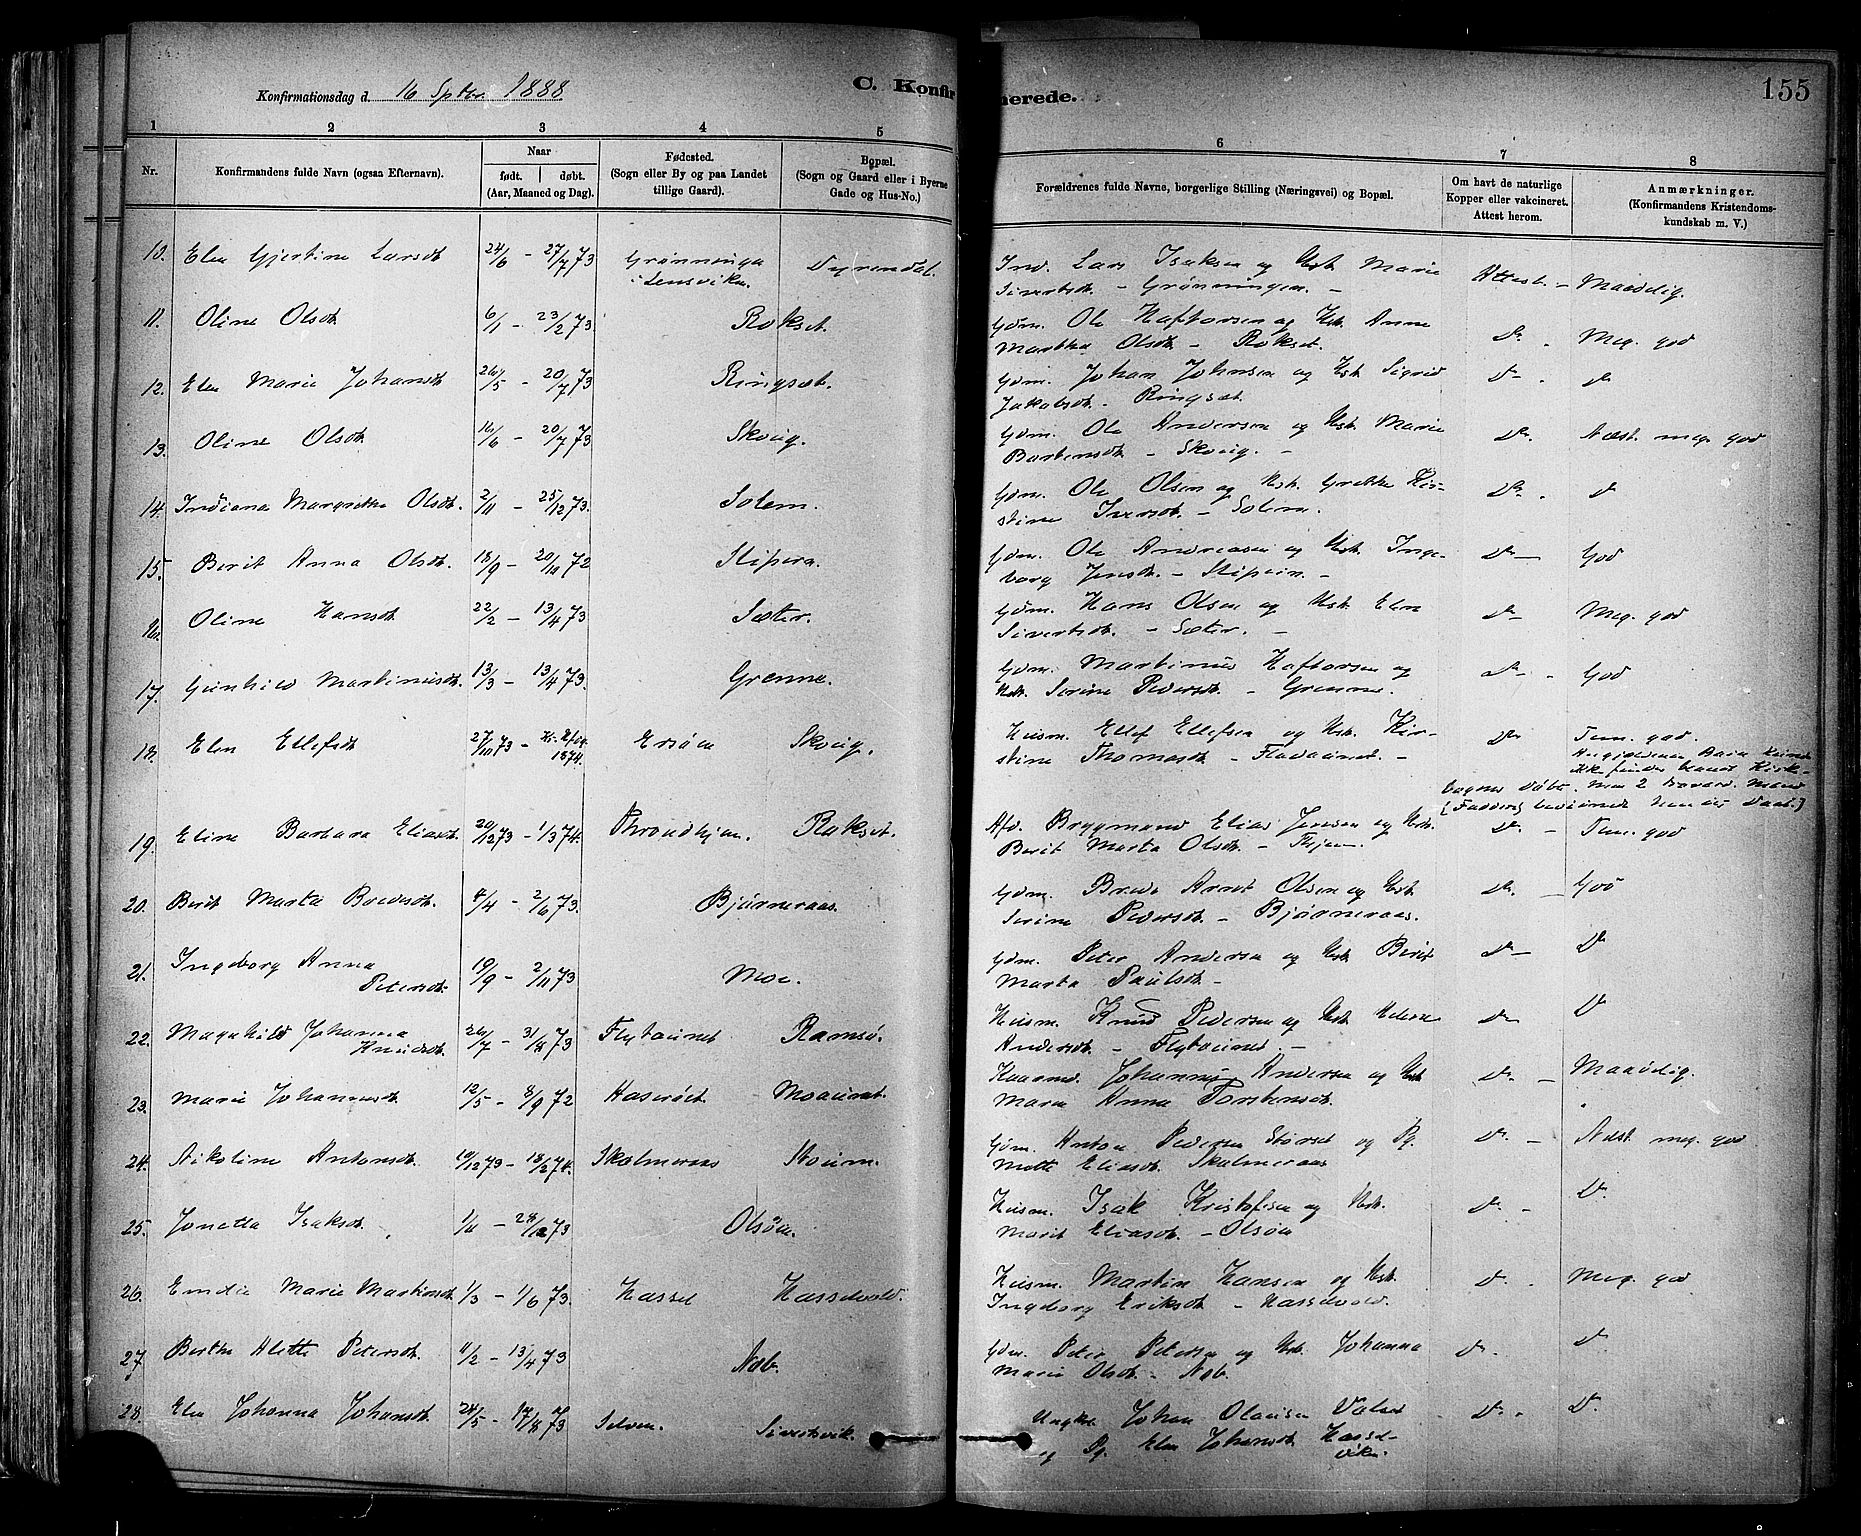 155
Konfirmationsdag d. 16 Septbr. 1888 C. Konfir merede.
1 2 3 4 5 6 7 8
Nr. Konfirmandens fulde Navn (ogsaa Efternavn). Naar født. døbt. (Aar, Maaned og Dag). Fødested. (Sogn eller By og paa Landet tillige Gaard). Bopæl. (Sogn og Gaard eller i Byerne Gade og Hus-No.) Forældrenes fulde Navne, borgerlige Stilling (Næringsvei) og Bopæl. Om havt de naturlige Kopper eller vakcineret. Attest herom. Anmærkninger. (Konfirmandens Kristendomskundskab m. V.)
10. Elen Gjertine Larsdt. 24/6 - 27/7 73 Grønninga i Lensviken. Dyrendal. Ind. Lars Isaksen og Hst. Marie
Sivertsdt. - Grønningen. - Attest. - Maadelig.
11. Oline Olsdt. 6/1 - 23/2 73 Rokset. Gdm. Ole Haftorsen og Hst. Anne
Martha Olsdt. - Rokset. Do. Meg. god
12. Elen Marie Johansdt. 26/5 - 20/7 73 Ringsæt. Gdm. Johan Johnsen og Hst. Sigrid
Jakobsdt. - Ringsæt. Do. Do
13. Oline Olsdt. 16/6 - 20/7 73 Skoug. Gdm. Ole Andersen og Hst. Marie
Bartensdt. - Skoug. - Do. Næst. meg. god
14. Indiana Margrethe Olsdt. 2/11 - 25/12 73. Solem. Gdm. Ole Olsen og Hst. Grethe Kirstine
Iversdt. - Solem. Do. Do
15. Berit Anna Olsdt. 18/9 - 20/11 72 Stipern. Gdm. Ole Andreasen og Hst. Ingeborg
Jensdt. - Stipern. - Do - God
16. Oline Hansdt. 22/2 - 13/4 73 Sæter. Gdm. Hans Olsen og Hst. Elen
Sivertsdt. - Sæter. - Do - Meg. god
17. Gunhild Martinusdt. 13/3 - 13/4 73. Grønne. Gdm. Martinus Haftorsen og
Hst. Serine Pedersdt. - Grønne. Do - God
18. Elen Ellefsdt. 27/10 73 - 1874. Ersøen Skoug. Husm. Ellef Ellefsen og Hst. Kirstine
Thomasdt. - Fladaunet. - Do Tem. god.
19. Eline Barbara Eliasdt. 20/12 73 - 1/3 74. Throndhjem. Rokset. Afd. Brygmand Elias Jensen og Hst.
Berit Marta Olsdt. - Thjem. Do. - Tem. god
20. Berit Marta Bredesdt. 4/4 - 2/6 73. Bjørneraas. Gdm. Brede Arnt Olsen og Hst.
Serine Pedersdt. - Bjørneraas. Do. - God
21. Ingeborg Anna Petersdt. 19/9 - 2/11 73 Moe. Gdm. Peter Andersen og Hst. Berit
Marta Paulsdt. - Do - Do
22. Magnhild Johanna Knudsdt. 26/7 - 31/8 73 Flytaunet Ramsø. Husm. Knud Pedersen og Hst. Helena
Andersdt. - Flytaunet. - Do - Do
23. Marie Johannesdt. 12/5 - 8/9 72 Haserøet Moaunet. Kaarmd. Johannes Andersen og Hst.
Maren Anna Torstensdt. Do. - Maadelig.
24. Nikoline Antonsdt. 19/12 73 - 18/2 74. Skalmeraas Stoum. Gdm. Anton Pedersen Størset og Pg.
Mette Eliasdt. Skalmeraas Do. - Næst. meg. god
25. Jonetta Isaksdt. 1/11 - 28/12 73 Olsøen. Husm. Isak Kristofersen og Hst.
Marit Eliasdt. - Olsøen Do. - Do.
26. Emelie Marie Martinsdt. 1/3 - 1/6 73. Hassel Hasselvold. Husm. Martin Hansen og Hst.
Ingeborg Eriksdt. - Hasselvold. Do. Meg. god
27. Berthe Alette Petersdt. 11/2 - 13/4 73 Nøb. Gdm. Peter Petersen og Hst. Johanna
Marie Olsdt. - Nøb. Do. Do.
28. Elen Johanna Johansdt. 24/5 - 17/8 73 Selven. Sivertsvik. Ungka. Johan Olausen
og Pg. Elen Johansdt. Do. Do.